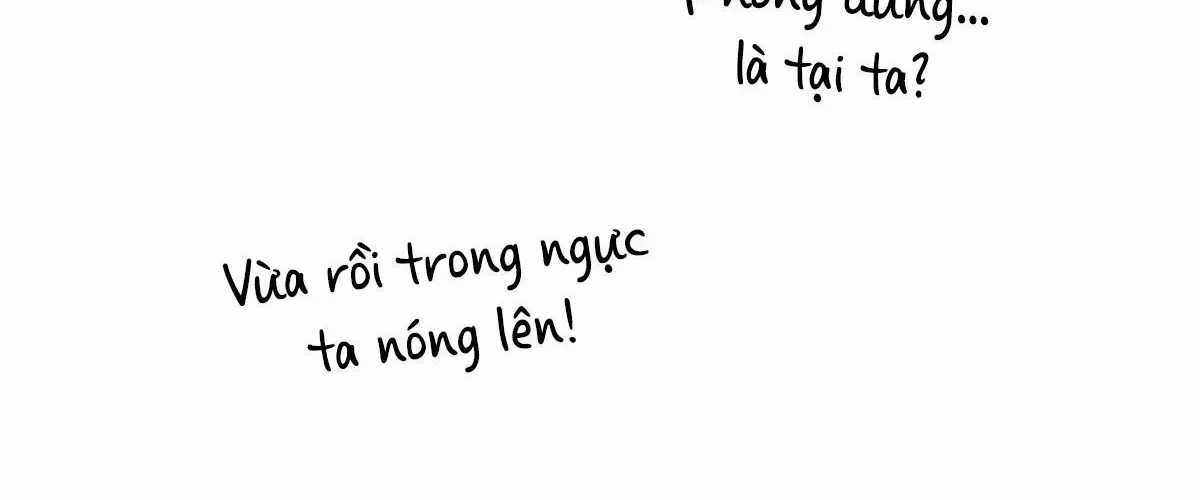 là tại ta?
Vừa rồi trong ngực
ta nóng lên!